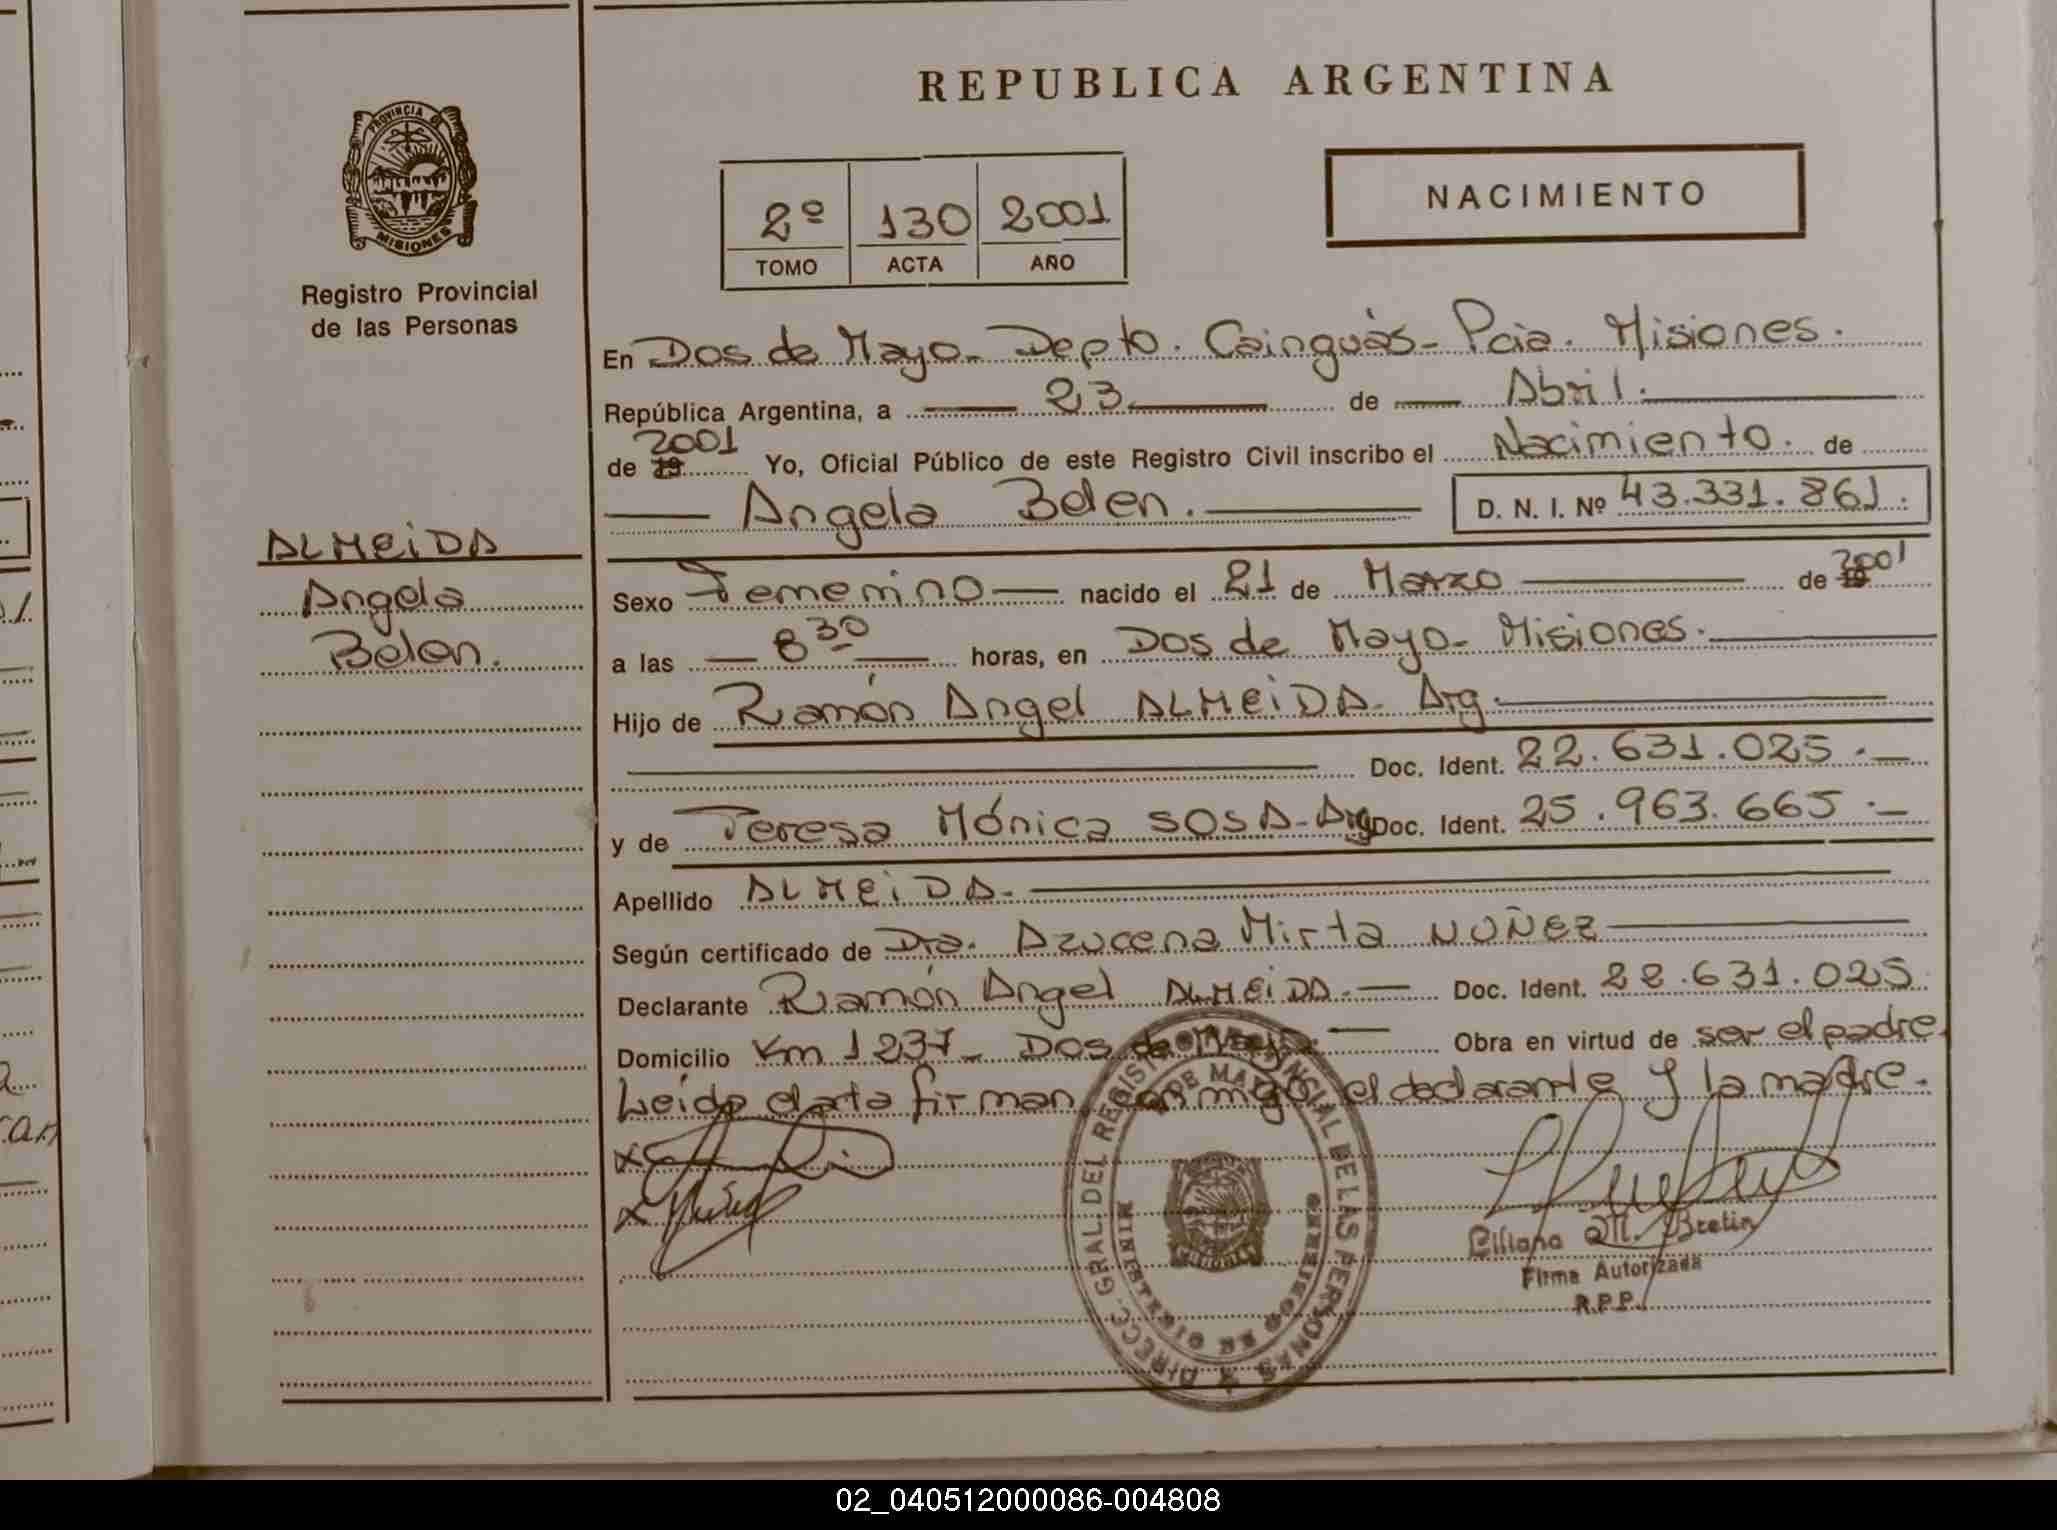 REPUBLICA ARGENTINA
PROVINCIA DE
MISIONES
Registro Provincial
de las Personas
NACIMIENTO
2º 130 2001
TOMO ACTA AÑO
En Dos de Mayo - Depto. Cainguás - Pcia. Misiones.
República Argentina, a 23 de Abril.
de 19 2001 Yo, Oficial Público de este Registro Civil inscribo el Nacimiento. de
Angela Belen. D. N. I. Nº 43.331.861.
ALMEIDA
Angela
Belen.
Sexo Femenino nacido el 21 de Marzo de 19 2001
a las 8 30 horas, en Dos de Mayo - Misiones.
Hijo de Ramón Angel ALMEIDA - Arg.
Doc. Ident. 22.631.025.
y de Teresa Mónica SOSA - Arg Doc. Ident. 25.963.665.
Apellido ALMEIDA.
Según certificado de Dra. Azucena Mirta NUÑEZ
Declarante Ramón Angel ALMEIDA. Doc. Ident. 22.631.025
Domicilio Km 1237 - Dos de Mayo. Obra en virtud de ser el padre.
Leída el acta firman conmigo el declarante y la madre.
x
x
DIRECC. GRAL. DEL REGISTRO PROVINCIAL DE LAS PERSONAS
DE MAYO
MINISTERIO DE GOBIERNO
Liliana M. Bretin
Firma Autorizada
R.P.P.
02_040512000086-004808